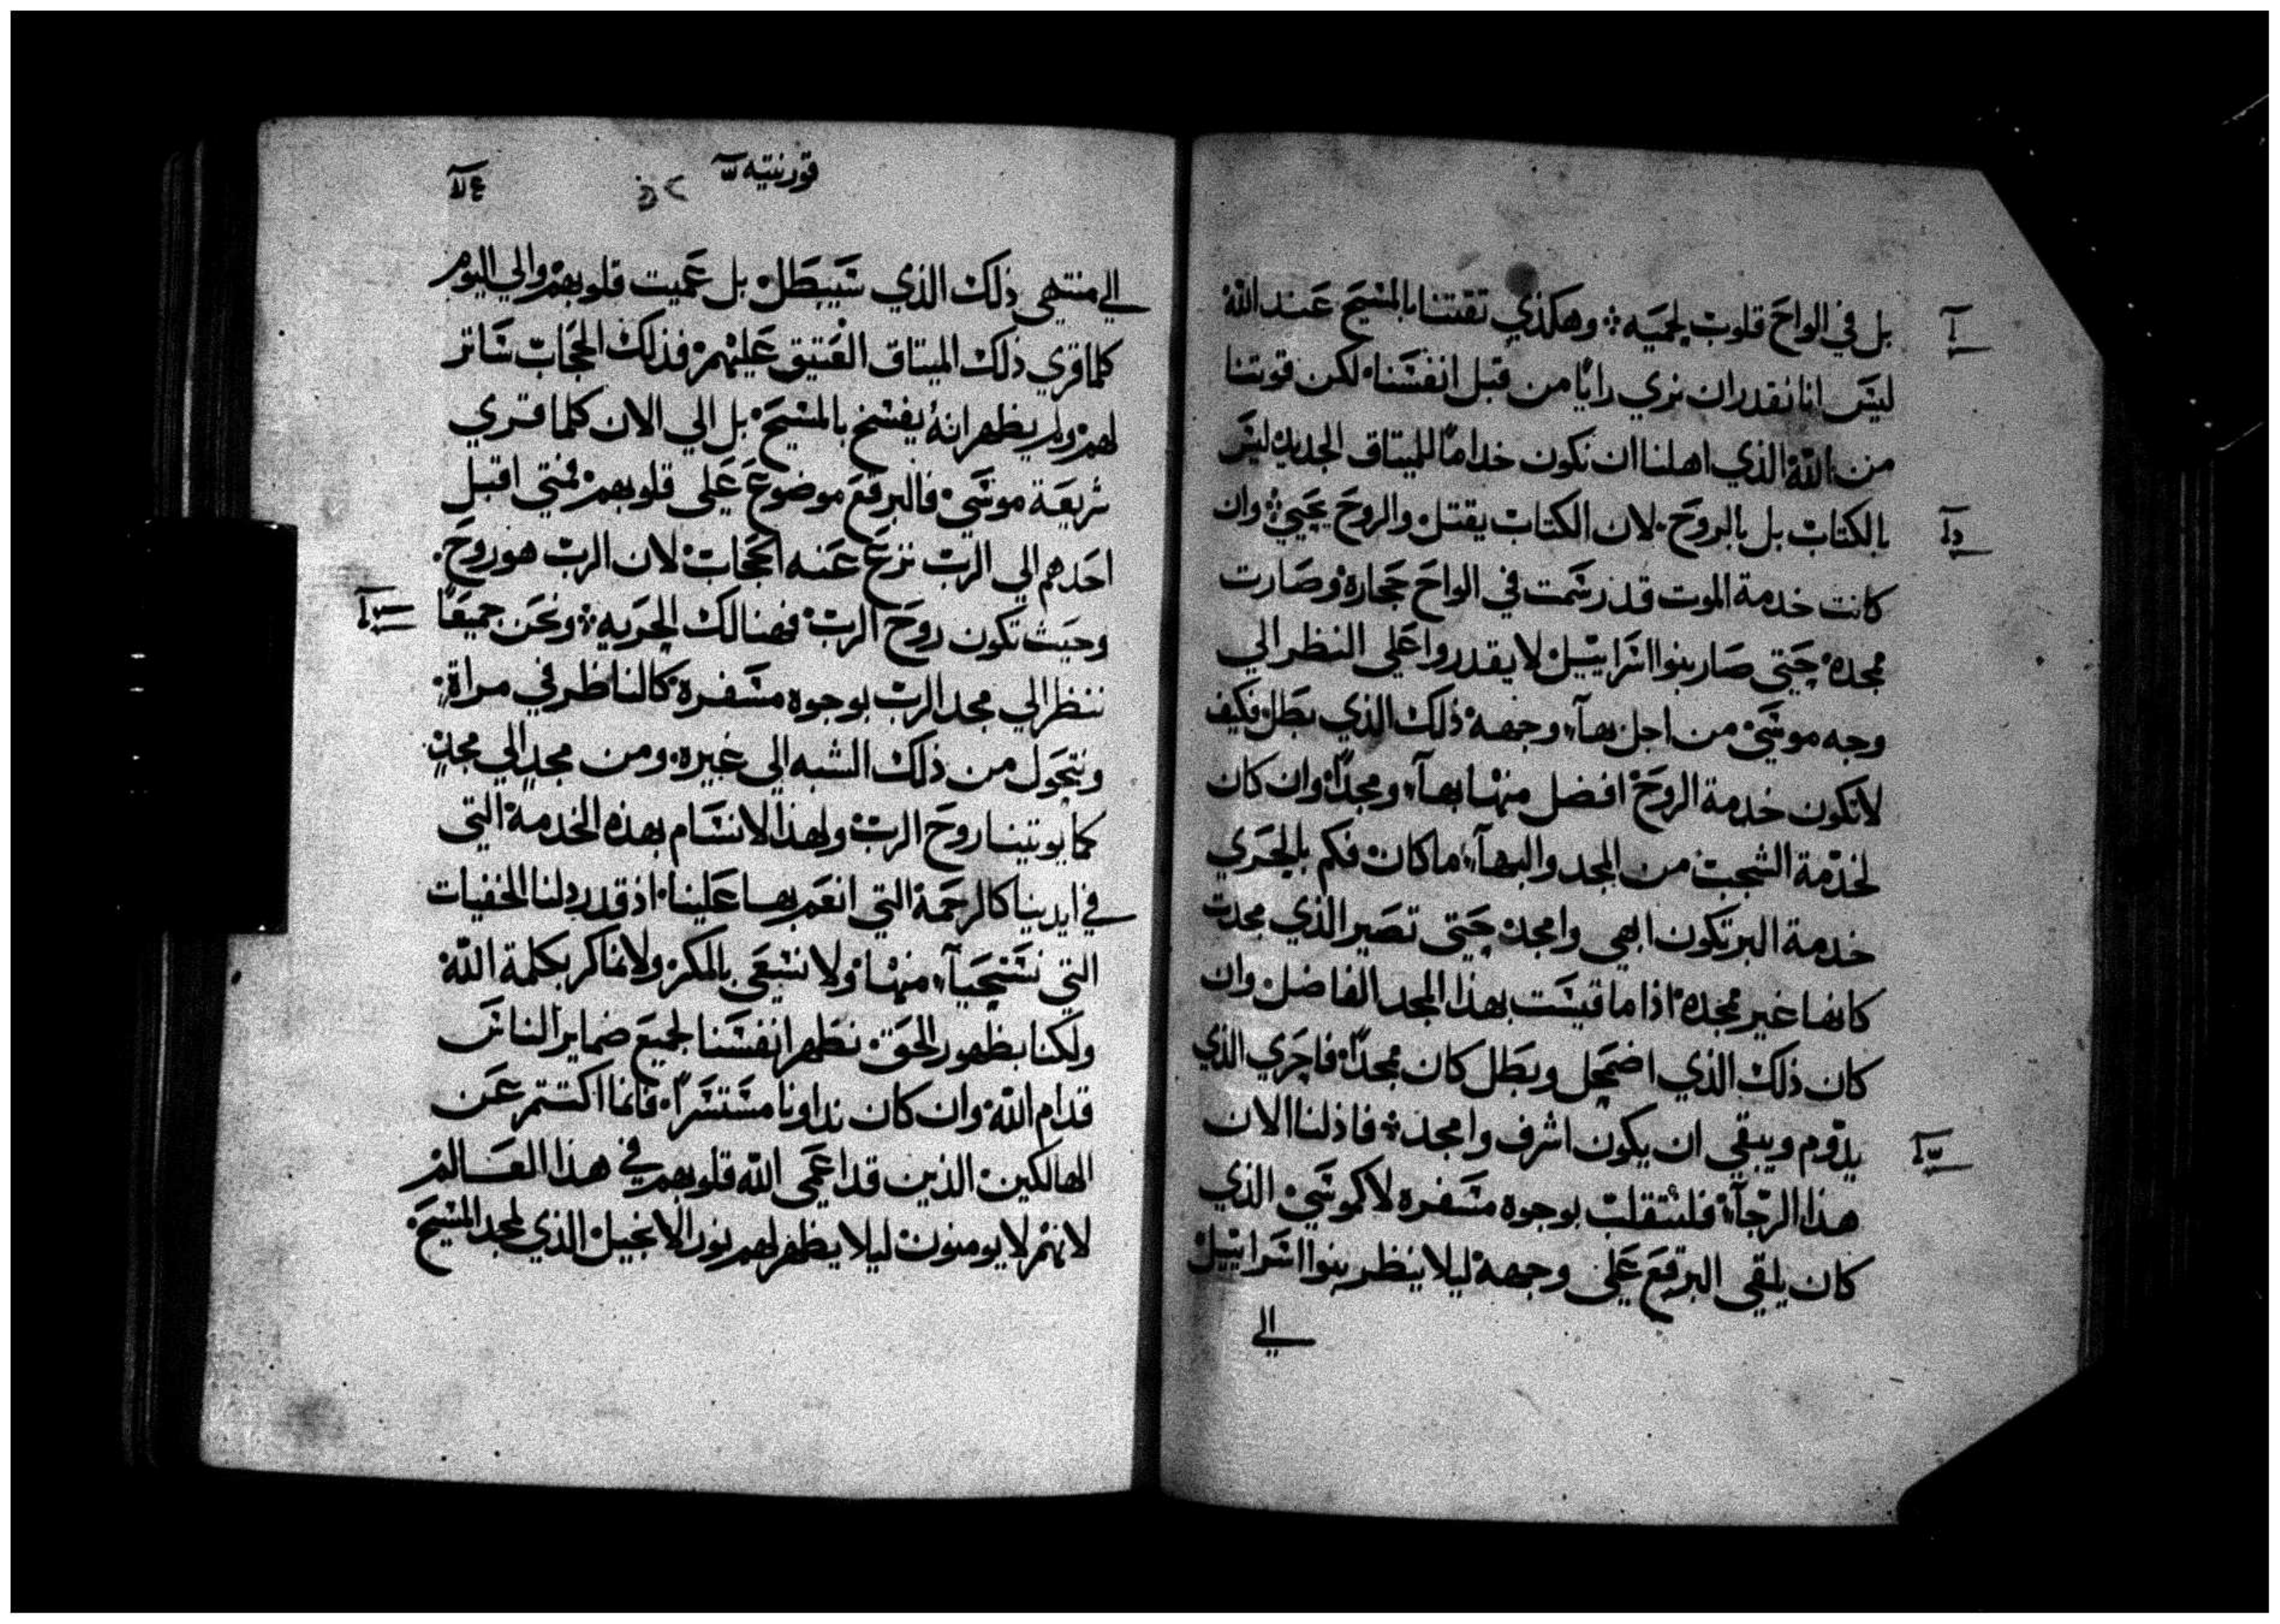 بل في الواح قلوب لحميه وهكذي تقتنا بالمسيح عند الله
ليس انا نقدر ان نري رايا من قبل انفسنا لكن قوتنا
من الله الذي اهلنا ان نكون خداما للميتاق الجديد ليس
بالكتاب بل بالروح لان الكتاب يقتل والروح يحيي وان
كانت خدمة الموت قد رسمت في الواح حجارة وصارت
مجده حتي صار بنوا اسراييل لا يقدروا علي النظر الي
وجه موسي من اجل بهآء وجهه ذلك الذي بطل فكيف
لا تكون خدمة الروح افضل منها بهآء ومجدا وان كان
لخدمة الشجب من المجد والبهآء ما كان فكم بالحري
خدمة البر تكون ابهي وامجد حتي تصير الذي مجدت
كانها غير مجده اذا ما قيست بهذا المجد الفاضل وان
كان ذلك الذي اضمحل وبطل كان مجدا فاحري الذي
يدوم ويبقي ان يكون اشرف وامجد فاذ لنا الان
هذا الرجآء فلنتقلب بوجوه مسفره لا كموسي الذي
كان يلقي البرقع علي وجهه ليلا ينظر بنوا اسراييل
الي
قورنتيه
الي منتهي ذلك الذي سيبطل بل عميت قلوبهم والي اليوم
كلما قري ذلك الميتاق العتيق عليهم فذلك الحجاب ساتر
لهم ولم يظهر انه يفسخ بالمسيح بل الي الان كلما قري
شريعة موسي فالبرقع موضوع علي قلوبهم فمتي اقبل
احدهم الي الرب نزع عنه الحجاب لان الرب هو روح
وحيث تكون روح الرب فهنالك الحريه ونحن جميعا
ننظر الي مجد الرب بوجوه مسفرة كالناظر في مراة
ونتحول من ذلك الشبه الي غيره ومن مجد الي مجد
كما يوتينا روح الرب ولهذا لا نسام بهذه الخدمة التي
في ايدينا كالرحمة التي انعم بها علينا اذ قد ردلنا الخفيات
التي نستحيآء منها ولا نسعي بالمكر ولا نماكر بكلمة الله
ولكنا بظهور الحق نظهر انفسنا لجميع ضماير الناس
قدام الله وان كان نداونا مستسرا فانما اكتتم عن
الهالكين الذين قد اعمي الله قلوبهم في هذا العالم
لانهم لا يومنون ليلا يظهر لهم نور الانجيل الذي لمجد المسيح